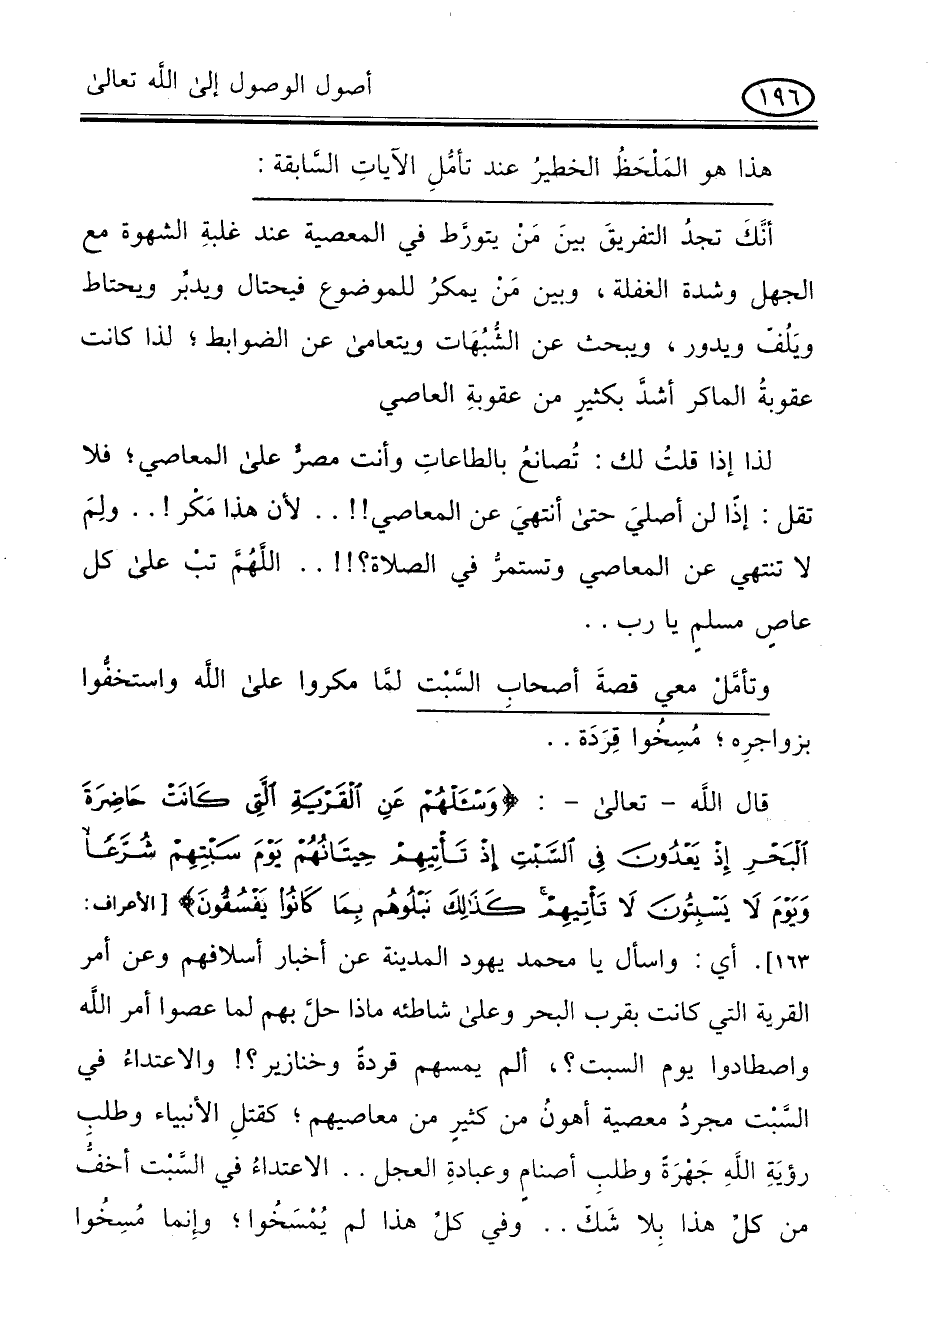 ١٩٦ أصول الوصول إلىٰ اللَّه تعالىٰ
هذا هو المَلْحَظُ الخطيرُ عند تأمُّلِ الآياتِ السَّابقة :
أنَّكَ تجدُ التفريقَ بينَ مَنْ يتورَّط في المعصية عند غلبةِ الشهوة مع
الجهل وشدة الغفلة ، وبين مَنْ يمكرُ للموضوع فيحتال ويدبِّر ويحتاط
ويَلُفّ ويدور ، ويبحث عن الشُّبُهَات ويتعامىٰ عن الضوابط ؛ لذا كانت
عقوبةُ الماكر أشدَّ بكثيرٍ من عقوبةِ العاصي
لذا إذا قلتُ لك : تُصانعُ بالطاعاتِ وأنت مصرٌّ علىٰ المعاصي ؛ فلا
تقل : إذًا لن أصليَ حتىٰ أنتهيَ عن المعاصي!! . . لأن هذا مَكْر ! . . ولِمَ
لا تنتهي عن المعاصي وتستمرُّ في الصلاة؟!! . . اللَّهُمَّ تبْ علىٰ كل
عاصٍ مسلمٍ يا رب . .
وتأمَّلْ معي قصةَ أصحابِ السَّبْت لمَّا مكروا علىٰ اللَّه واستخفُّوا
بزواجرِه ؛ مُسِخُوا قِرَدَة . .
قال اللَّه - تعالىٰ - : ﴿وَسْـَٔلْهُمْ عَنِ ٱلْقَرْيَةِ ٱلَّتِى كَانَتْ حَاضِرَةَ
ٱلْبَحْرِ إِذْ يَعْدُونَ فِى ٱلسَّبْتِ إِذْ تَأْتِيهِمْ حِيتَانُهُمْ يَوْمَ سَبْتِهِمْ شُرَّعًا
وَيَوْمَ لَا يَسْبِتُونَ لَا تَأْتِيهِمْ ۚ كَذَٰلِكَ نَبْلُوهُم بِمَا كَانُوا۟ يَفْسُقُونَ﴾ [الأعراف:
١٦٣]. أي : واسأل يا محمد يهود المدينة عن أخبار أسلافهم وعن أمر
القرية التي كانت بقرب البحر وعلىٰ شاطئه ماذا حلَّ بهم لما عصوا أمر اللَّه
واصطادوا يوم السبت ؟، ألم يمسهم قردةً وخنازير ؟! والاعتداءُ في
السَّبْت مجردُ معصية أهونُ من كثيرٍ من معاصيهم ؛ كقتلِ الأنبياء وطلبِ
رؤيَةِ اللَّهِ جَهْرَةً وطلبِ أصنامٍ وعبادةِ العجل . . الاعتداءُ في السَّبْت أخفُّ
من كلِّ هذا بِلا شَكّ . . وفي كلِّ هذا لم يُمْسَخُوا ؛ وإنما مُسِخُوا